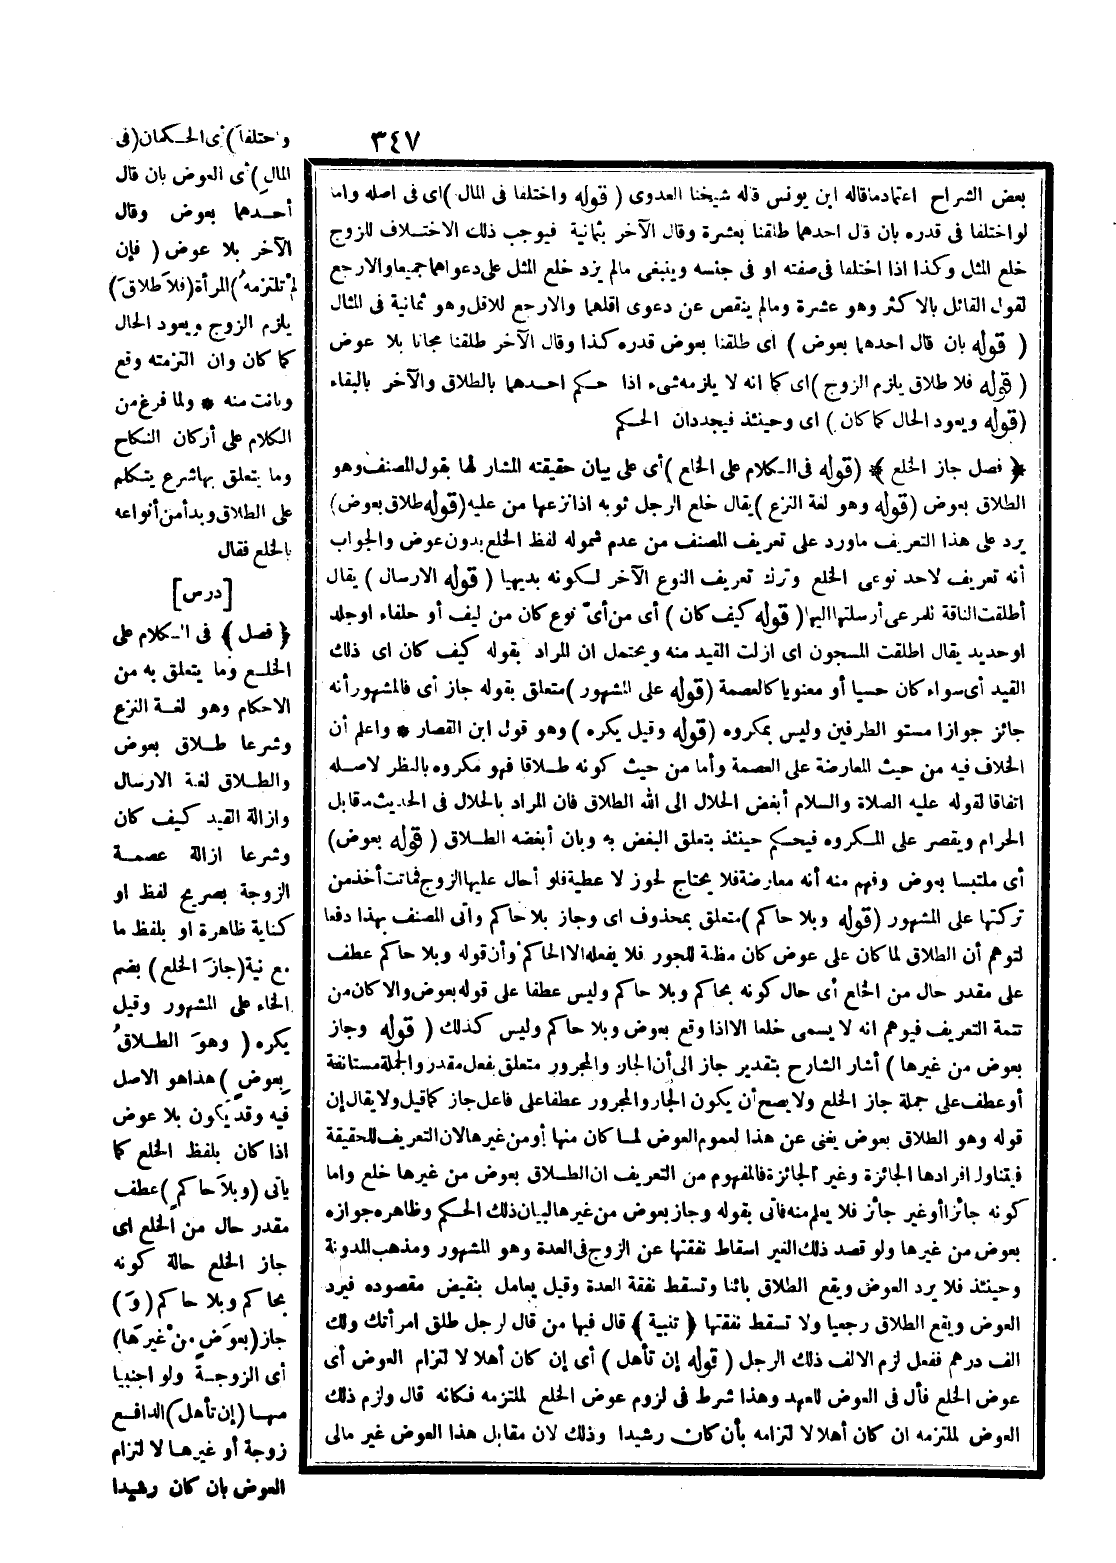 ٣٤٧
واختلفا) أى الحكمان (فى
المال) أى العوض بان قال
أحدهما بعوض وقال
الآخر بلا عوض (فإن
لم تلتزمه) المرأة (فلا طلاق)
يلزم الزوج ويعود الحال
كما كان وان التزمته وقع
وبانت منه * ولما فرغ من
الكلام على أركان النكاح
وما يتعلق بها شرع يتكلم
على الطلاق وبدأ من أنواعه
بالخلع فقال
[درس]
﴿ فصل ﴾ فى الكلام على
الخلع وما يتعلق به من
الاحكام وهو لغة النزع
وشرعا طلاق بعوض
والطلاق لغة الارسال
وازالة القيد كيف كان
وشرعا ازالة عصمة
الزوجة بصريح لفظ او
كناية ظاهرة او بلفظ ما
مع نية (جازَ الخلع) بضم
الخاء على المشهور وقيل
يكره (وهوَ الطلاقُ
بِعوضٍ) هذا هو الاصل
فيه وقد يكون بلا عوض
اذا كان بلفظ الخلع كما
يأتى (وبلاَ حاكمٍ) عطف
مقدر حال من الخلع اى
جاز الخلع حالة كونه
بحاكم وبلا حاكم (وَ)
جاز (بعوَضٍ منْ غيرَها)
أى الزوجة ولو اجنبيا
منها (إن تأهل) الدافع
زوجة أو غيرها لا لتزام
العوض بان كان رشيدا
بعض الشراح اعتمادما قاله ابن يونس قاله شيخنا العدوى (قوله واختلفا فى المال) اى فى اصله واما
لو اختلفا فى قدره بان قال احدهما طلقنا بعشرة وقال الآخر بثمانية فيوجب ذلك الاختلاف للزوج
خلع المثل وكذا اذا اختلفا فى صفته او فى جنسه وينبغى مالم يزد خلع المثل على دعواهما جميعا والارجع
لقول القائل بالاكثر وهو عشرة ومالم ينقص عن دعوى اقلهما والارجع للاقل وهو ثمانية فى المثال
(قوله بان قال احدهما بعوض) اى طلقنا بعوض قدره كذا وقال الآخر طلقنا مجانا بلا عوض
(قوله فلا طلاق يلزم الزوج) اى كما انه لا يلزمه شىء اذا حكم احدهما بالطلاق والآخر بالبقاء
(قوله ويعود الحال كما كان) اى وحينئذ فيجددان الحكم
﴿ فصل جاز الخلع ﴾ (قوله فى الكلام على الخلع) أى على بيان حقيقته المشار لها بقول المصنف وهو
الطلاق بعوض (قوله وهو لغة النزع) يقال خلع الرجل ثوبه اذا نزعها من عليه (قوله طلاق بعوض)
يرد على هذا التعريف ماورد على تعريف المصنف من عدم شموله لفظ الخلع بدون عوض والجواب
أنه تعريف لاحد نوعى الخلع وترك تعريف النوع الآخر لكونه بديهيا (قوله الارسال) يقال
أطلقت الناقة لمرعى أرسلتها اليها (قوله كيف كان) أى من أى نوع كان من ليف أو حلفاء او جلد
او حديد يقال اطلقت المسجون اى ازلت القيد منه ويحتمل ان المراد بقوله كيف كان اى ذلك
القيد أى سواء كان حسيا أو معنويا كالعصمة (قوله على المشهور) متعلق بقوله جاز أى فالمشهور أنه
جائز جوازا مستو الطرفين وليس بمكروه (قوله وقيل يكره) وهو قول ابن القصار * واعلم أن
الخلاف فيه من حيث المعارضة على العصمة وأما من حيث كونه طلاقا فهو مكروه بالنظر لاصله
اتفاقا لقوله عليه الصلاة والسلام أبغض الحلال الى الله الطلاق فان المراد بالحلال فى الحديث مقابل
الحرام ويقصر على المكروه فيحكم حينئذ بتعلق البغض به وبان أبغضه الطلاق (قوله بعوض)
أى ملتبسا بعوض وفهم منه أنه معارضة فلا يحتاج لحوز لا عطية فلو أحال عليها الزوج فماتت أخذ من
تركتها على المشهور (قوله وبلا حاكم) متعلق بمحذوف اى وجاز بلا حاكم وأتى المصنف بهذا دفعا
لتوهم أن الطلاق لما كان على عوض كان مظنة للجور فلا يفعله الا الحاكم وأن قوله وبلا حاكم عطف
على مقدر حال من الخلع أى حال كونه بحاكم وبلا حاكم وليس عطفا على قوله بعوض والا كان من
تتمة التعريف فيوهم انه لا يسمى خلعا الا اذا وقع بعوض وبلا حاكم وليس كذلك (قوله وجاز
بعوض من غيرها) أشار الشارح بتقدير جاز الى أن الجار والمجرور متعلق بفعل مقدر والجملة مستانفة
أو عطف على جملة جاز الخلع ولا يصح أن يكون الجار والمجرور عطفا على فاعل جاز كما قيل ولا يقال إن
قوله وهو الطلاق بعوض يغنى عن هذا لعموم العوض لما كان منها أو من غيرها لان التعريف للحقيقة
فيتناول افرادها الجائزة وغير الجائزة فالمفهوم من التعريف ان الطلاق بعوض من غيرها خلع واما
كونه جائزا أو غير جائز فلا يعلم منه فأتى بقوله وجاز بعوض من غيرها لبيان ذلك الحكم وظاهره جوازه
بعوض من غيرها ولو قصد ذلك الغير اسقاط نفقتها عن الزوج فى العدة وهو المشهور ومذهب المدونة
وحينئذ فلا يرد العوض ويقع الطلاق بائنا وتسقط نفقة العدة وقيل يعامل بنقيض مقصوده فيرد
العوض ويقع الطلاق رجعيا ولا تسقط نفقتها ﴿ تنبية ﴾ قال فيها من قال لرجل طلق امرأتك ولك
الف درهم ففعل لزم الالف ذلك الرجل (قوله إن تأهل) أى إن كان أهلا لا لتزام العوض أى
عوض الخلع فأل فى العوض للعهد وهذا شرط فى لزوم عوض الخلع لملتزمه فكانه قال ولزم ذلك
العوض لملتزمه ان كان أهلا لا لتزامه بأن كان رشيدا وذلك لان مقابل هذا العوض غير مالى